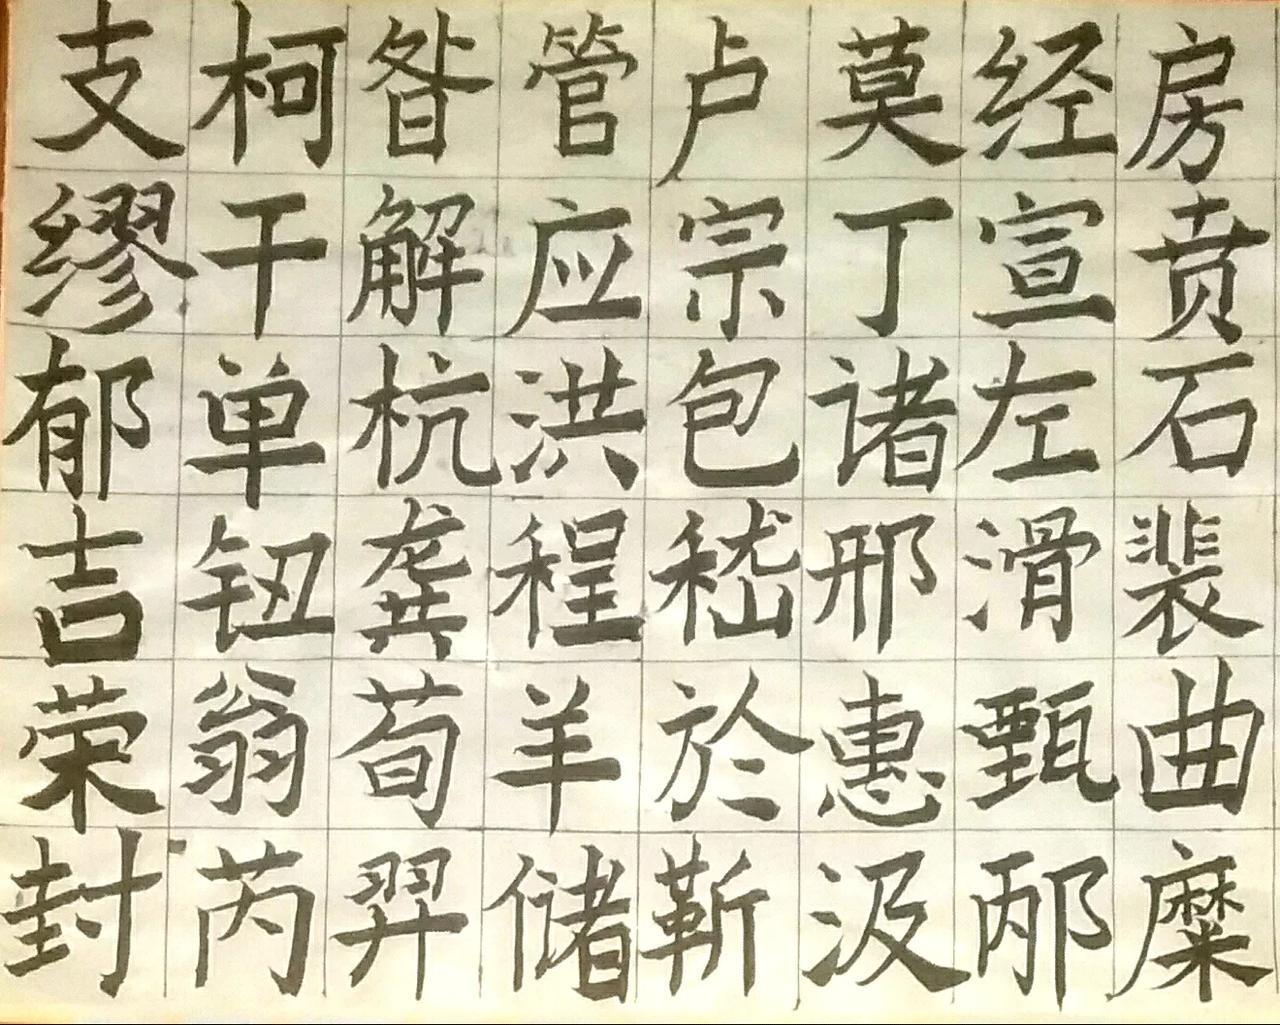 支柯昝管卢莫经房
缪干解应宗丁宣贲
郁单杭洪包诸左石
吉钮龚程嵇邢滑裴
荣翁荀羊於惠甄曲
封芮羿储靳汲邴糜